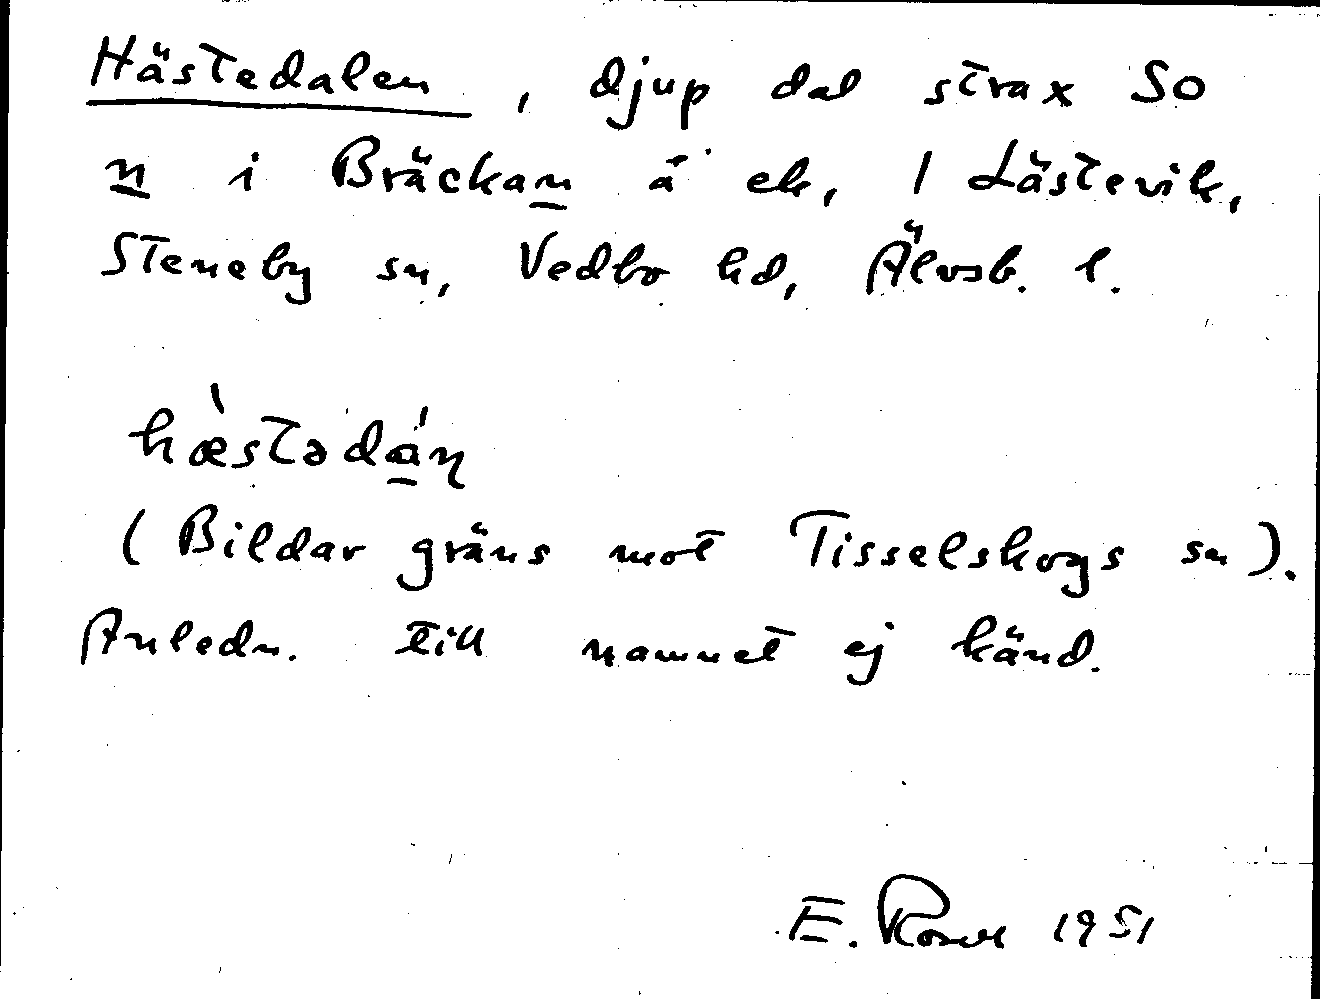 Hästedalen, djup dal strax SO
n i Bräckan å ek, 1 Låstevik,
Steneby sn, Vedbo hd, Älvsb. l.
hæ̀stədáṇ
(Bildar gräns mot Tisselskogs sn).
Anledn. till namnet ej känd.
E. 1951